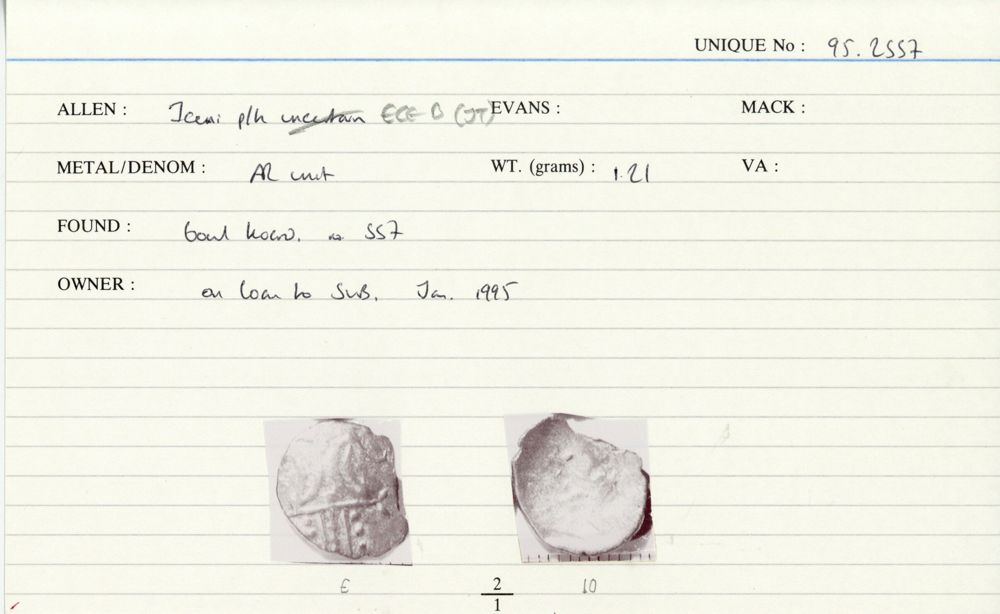 UNIQUE No : 95.2557
ALLEN : Iceni p/h uncertain ECE B (JT) EVANS : MACK :
METAL/DENOM : AR unit WT. (grams) : 1.21 VA :
FOUND : bowl hoard, no 557
OWNER : on loan to SWB, Jan. 1995
E 2 10
1